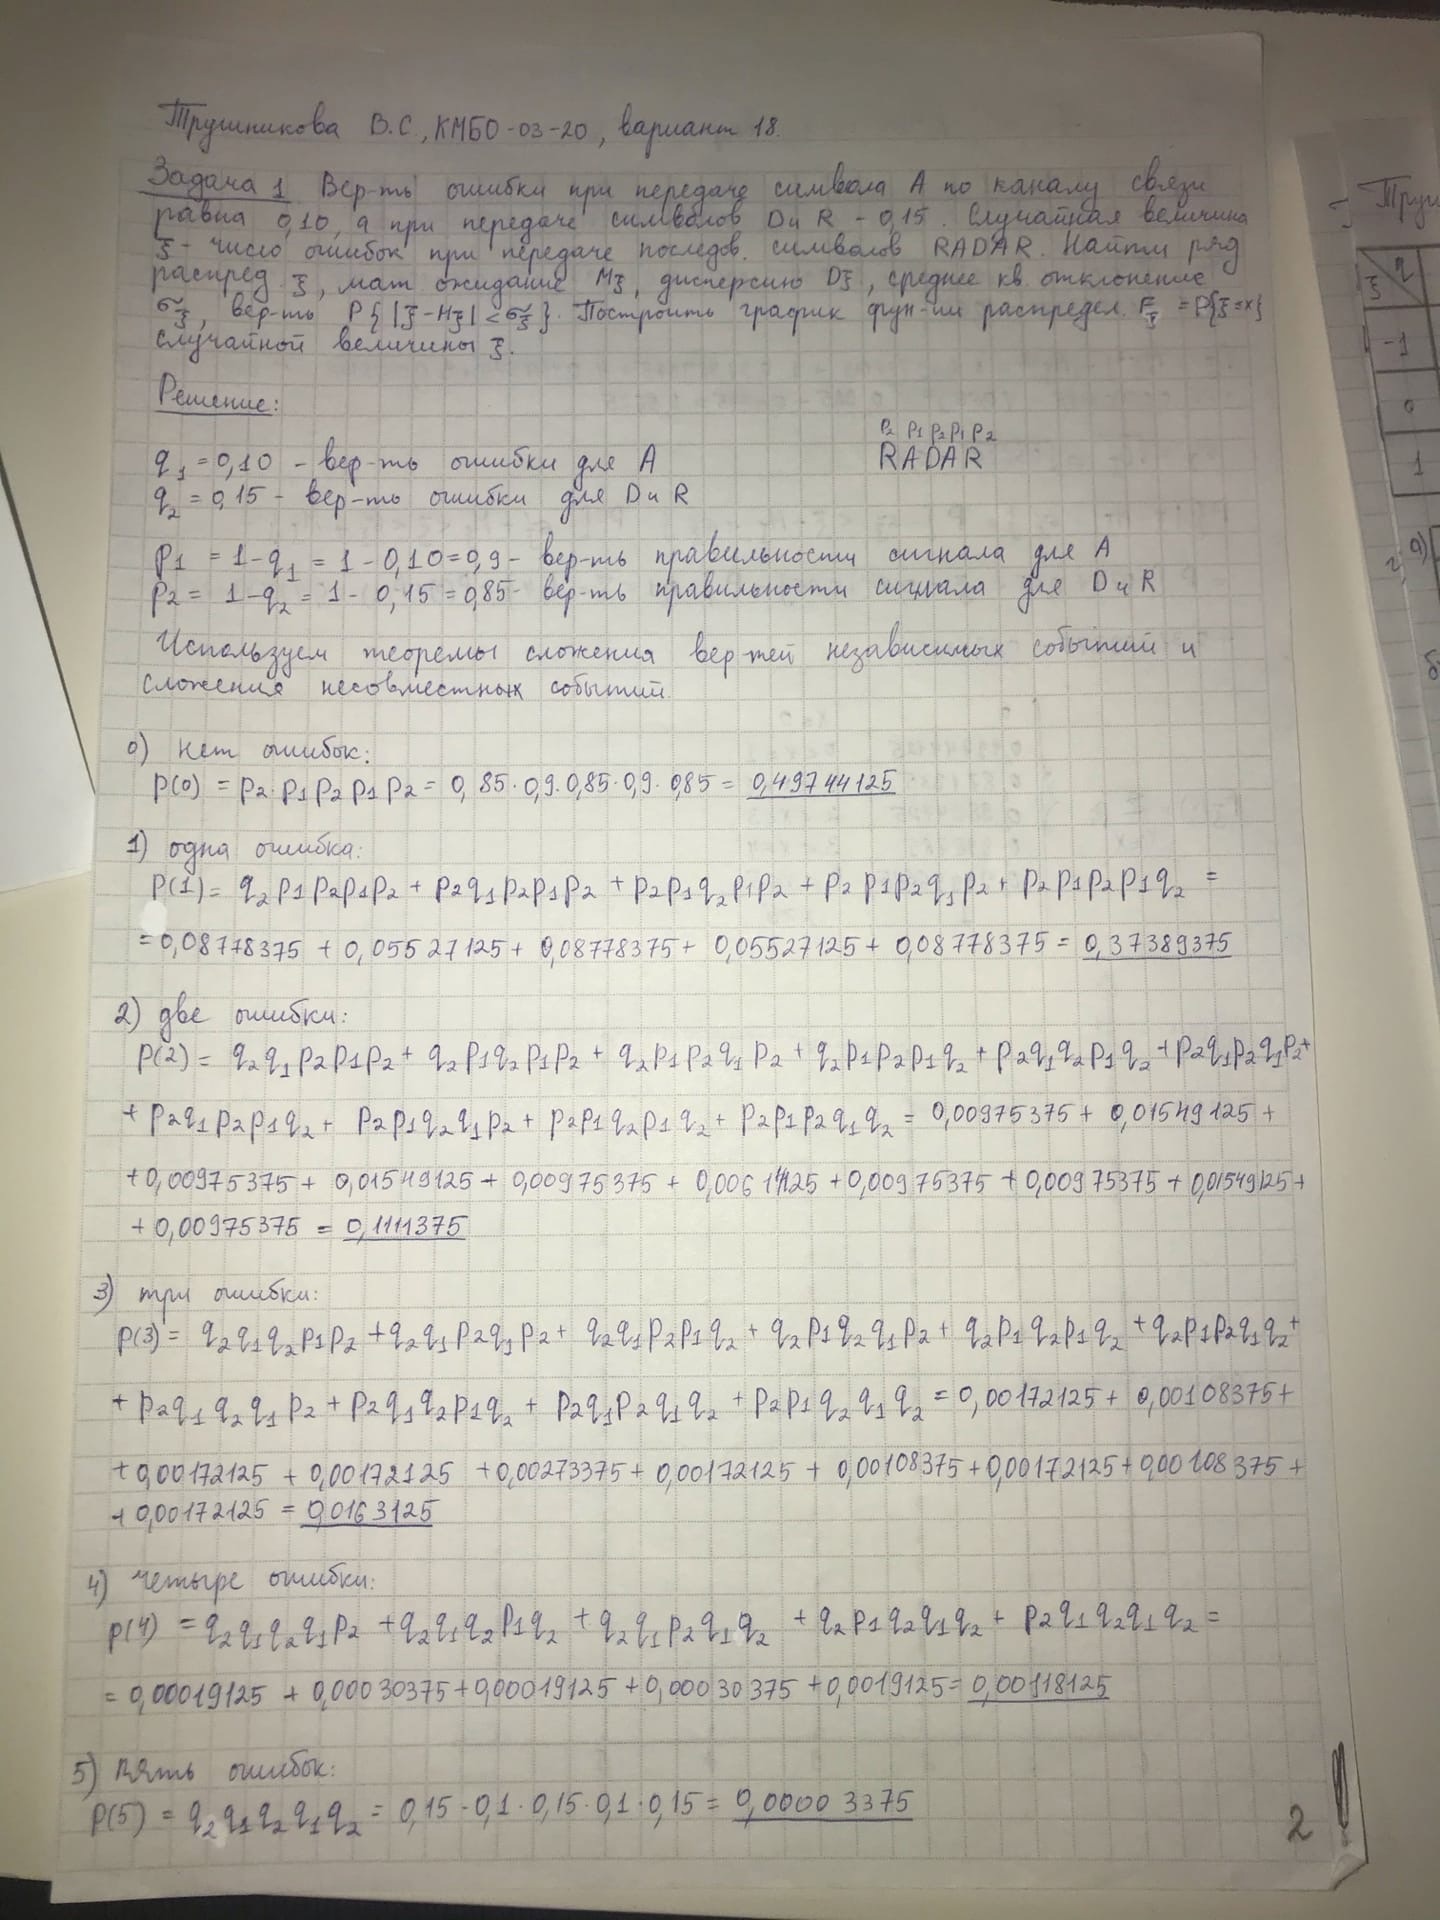 Трушникова В.С., КМБО-03-20, вариант 18.
Задача 1 Вер-ть ошибки при передаче символа A по каналу связи
равна 0,10, а при передаче символов D и R - 0,15. Случайная величина
ξ - число ошибок при передаче послед. символов RADAR. Найти ряд
распред. ξ, мат ожидание Mξ, дисперсию Dξ, среднее кв. отклонение
σξ, вер-ть P{|ξ-Mξ|<σξ}. Построить график фун-ии распредел. Fξ = P{ξ=x}
случайной величины ξ.
Решение:
p2 p1 p2 p1 p2
q1 = 0,10 - вер-ть ошибки для A RADAR
q2 = 0,15 - вер-ть ошибки для D и R
p1 = 1-q1 = 1-0,10=0,9 - вер-ть правильности сигнала для A
p2 = 1-q2 = 1-0,15=0,85 - вер-ть правильности сигнала для D и R
Используем теоремы сложения вер-тей независимых событий и
сложения несовместных событий.
0) нет ошибок:
p(0) = p2·p1p2p1p2 = 0,85·0,9·0,85·0,9·0,85 = 0,49744125
1) одна ошибка:
p(1) = q2p1p2p1p2 + p2q1p2p1p2 + p2p1q2p1p2 + p2p1p2q1p2 + p2p1p2p1q2 =
=0,08778375 + 0,05527125 + 0,08778375 + 0,05527125 + 0,08778375 = 0,37389375
2) две ошибки:
p(2) = q2q1p2p1p2 + q2p1q2p1p2 + q2p1p2q1p2 + q2p1p2p1q2 + p2q1q2p1q2 + p2q1p2q1p2 +
+ p2q1p2p1q2 + p2p1q2q1p2 + p2p1q2p1q2 + p2p1p2q1q2 = 0,00975375 + 0,01549125 +
+0,00975375 + 0,01549125 + 0,00975375 + 0,0061425 + 0,00975375 + 0,00975375 + 0,01549125 +
+ 0,00975375 = 0,1111375
3) три ошибки:
p(3) = q2q1q2p1p2 + q2q1p2q1p2 + q2q1p2p1q2 + q2p1q2q1p2 + q2p1q2p1q2 + q2p1p2q1q2 +
+ p2q1q2q1p2 + p2q1q2p1q2 + p2q1p2q1q2 + p2p1q2q1q2 = 0,00172125 + 0,00108375 +
+0,00172125 + 0,00172125 + 0,00273375 + 0,00172125 + 0,00108375 + 0,00172125 + 0,00108375 +
+ 0,00172125 = 0,0163125
4) четыре ошибки:
p(4) = q2q1q2q1p2 + q2q1q2p1q2 + q2q1p2q1q2 + q2p1q2q1q2 + p2q1q2q1q2 =
= 0,00019125 + 0,00030375 + 0,00019125 + 0,00030375 + 0,0019125 = 0,00118125
5) пять ошибок:
p(5) = q2q1q2q1q2 = 0,15·0,1·0,15·0,1·0,15 = 0,00003375
2
Труш
ξ η
-1
0
1
а)